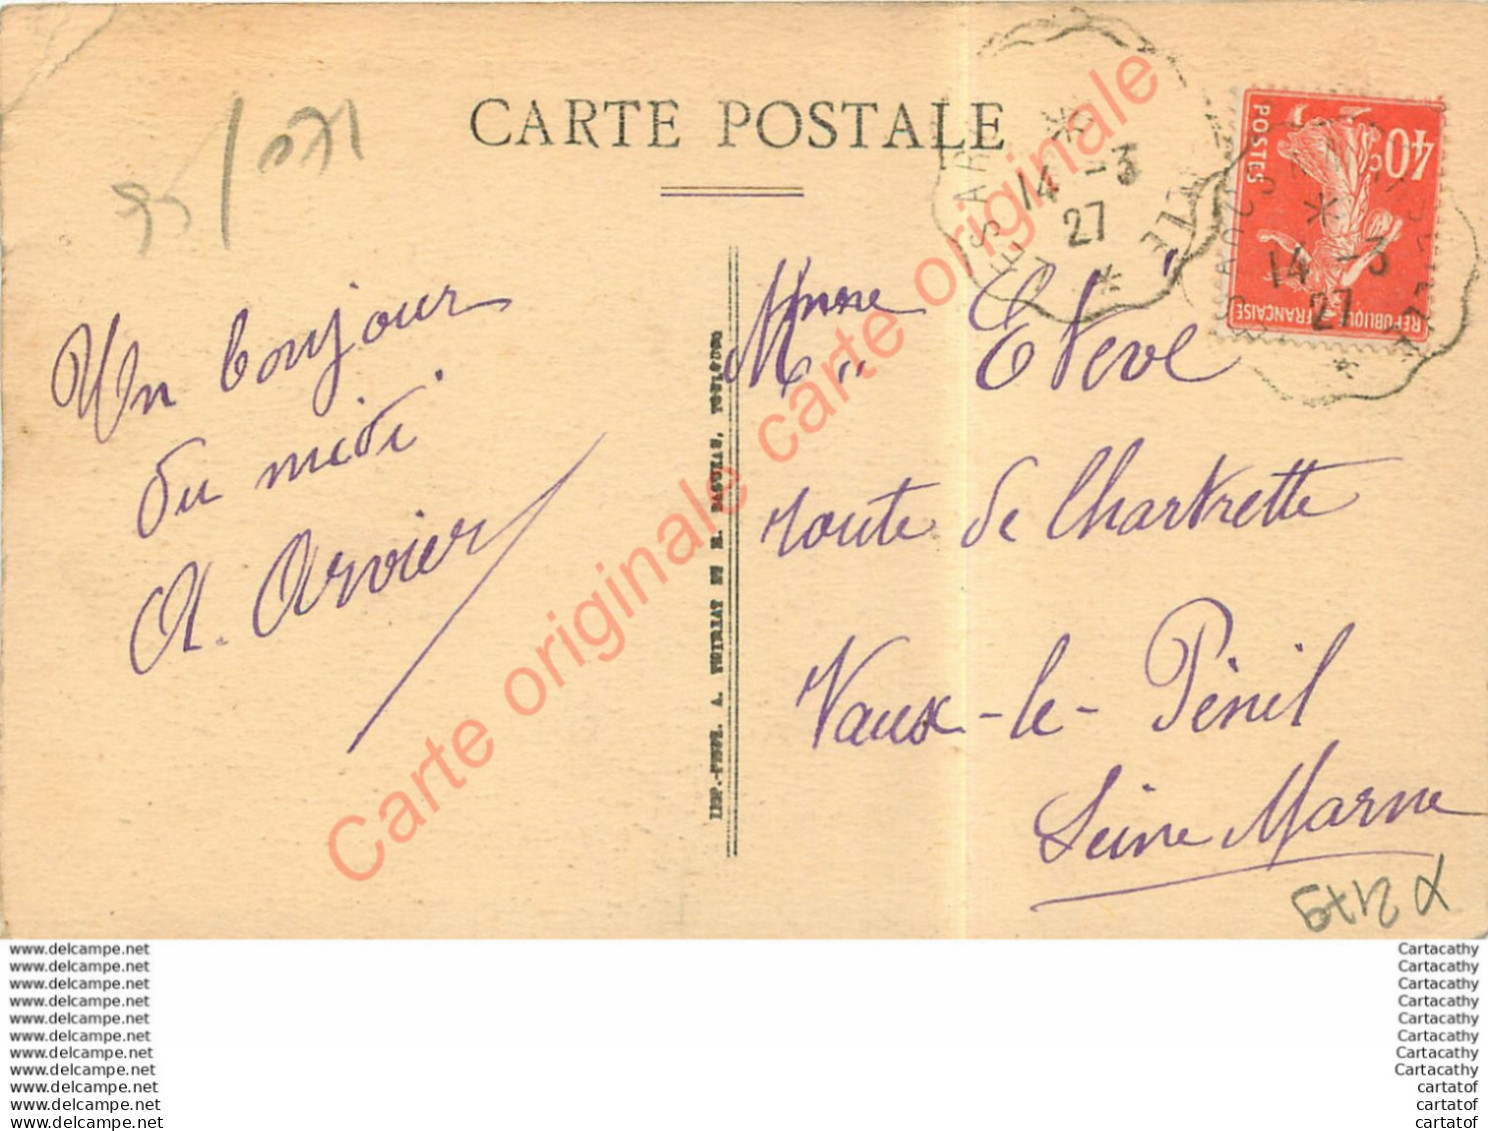 CARTE POSTALE
Un bonjour
du midi.
A. Arvier
Mme
Mlle Etève
route de Chartrette
Vaux-le-Pénil
Seine Marne
14 -3
27
14 -3
27
40 c
POSTES
REPUBLIQUE FRANCAISE
IMP.-PHOT. A. THIRIAT ET H. BASUYAU, TOULOUSE
Carte originale carte originale
www.delcampe.net
www.delcampe.net
www.delcampe.net
www.delcampe.net
www.delcampe.net
www.delcampe.net
www.delcampe.net
www.delcampe.net
www.delcampe.net
www.delcampe.net
www.delcampe.net
Cartacathy
Cartacathy
Cartacathy
Cartacathy
Cartacathy
Cartacathy
Cartacathy
Cartacathy
cartatof
cartatof
cartatof